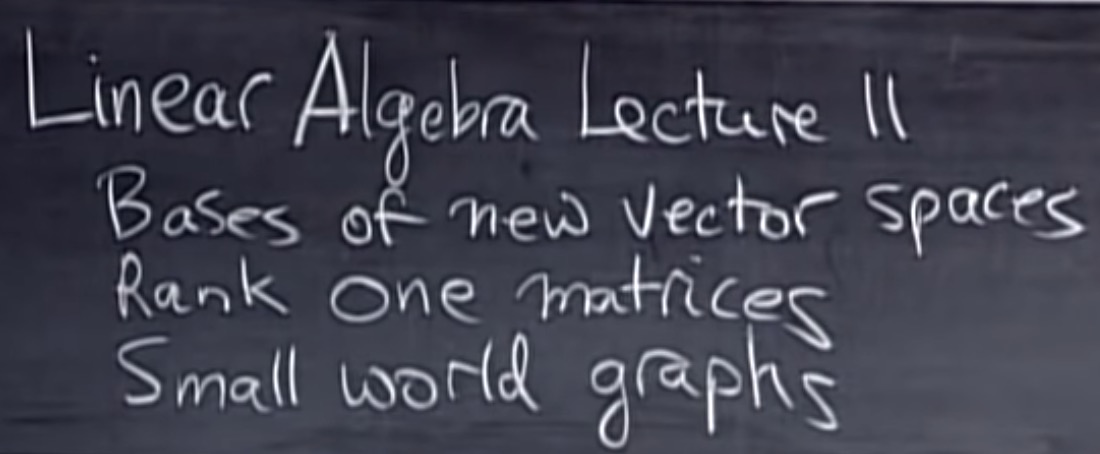 Linear Algebra Lecture 11
Bases of new vector spaces
Rank one matrices
Small world graphs